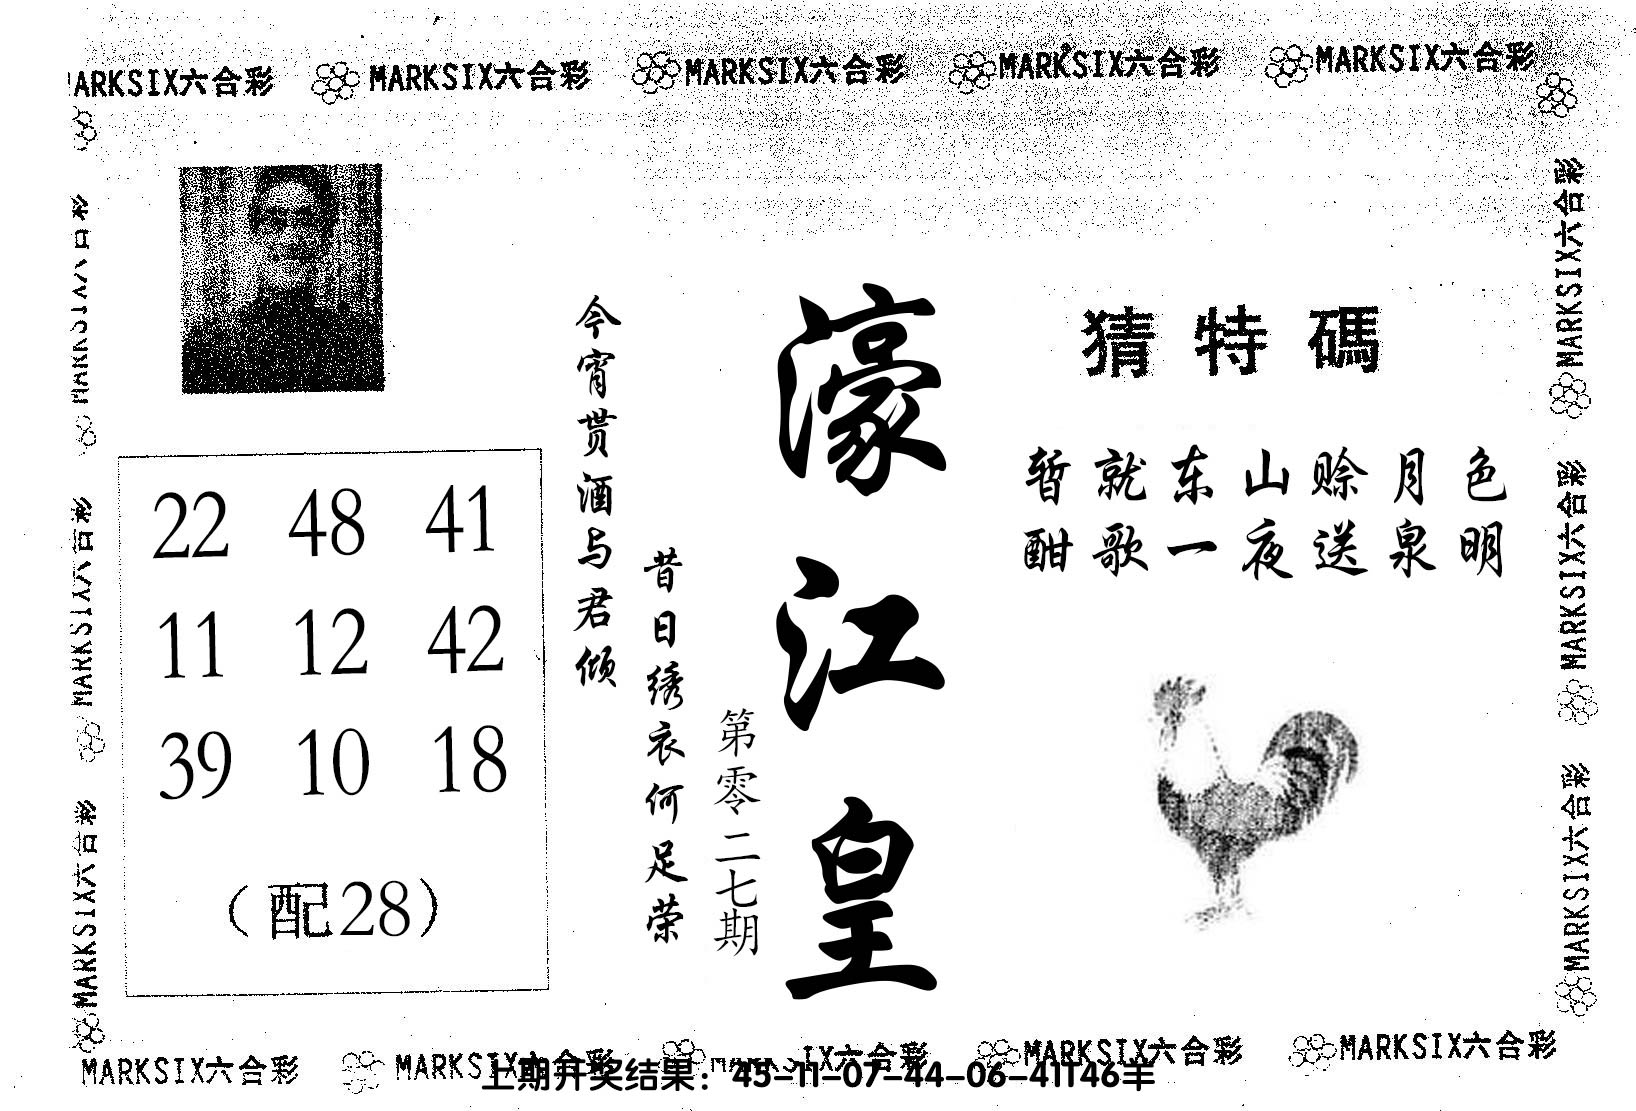 MARKSIX六合彩 MARKSIX六合彩 MARKSIX六合彩 MARKSIX六合彩
猜特碼
暂就东山赊月色
酣歌一夜送泉明
濠江皇
第零二七期
昔日绣衣何足荣
今宵贳酒与君倾
22 48 41
11 12 42
39 10 18
（配28）
MARKSIX六合彩
MARKSIX六合彩
MARKSIX六合彩
MARKSIX六合彩
MARKSIX六合彩
MARKSIX六合彩 MARKSIX六合彩 MARKSIX六合彩 MARKSIX六合彩
上期开奖结果：45-11-07-44-06-41T46羊